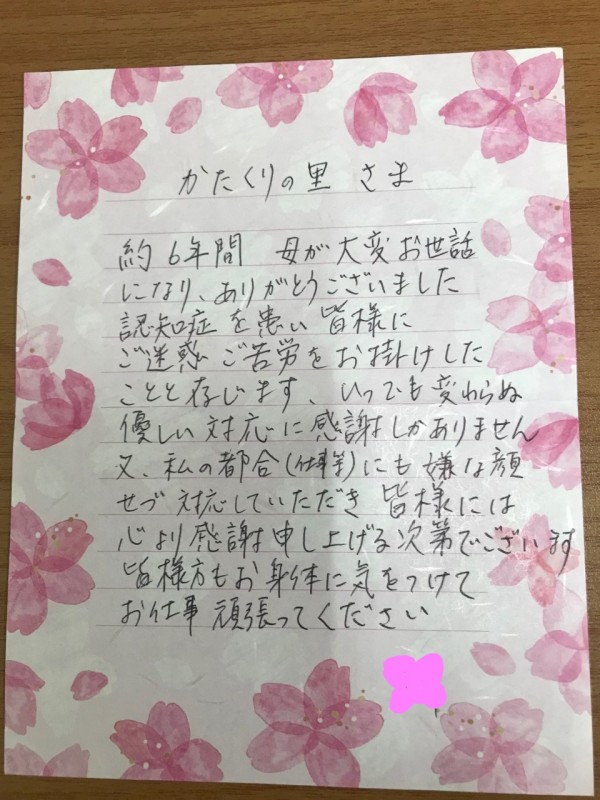 かたくりの里 さま
約6年間 母が大変お世話
になり、ありがとうございました
認知症を患い 皆様に
ご迷惑 ご苦労をお掛けした
ことと存じます、いつでも変わらぬ
優しい対応に感謝しかありません
又、私の都合(仕事等)にも嫌な顔
せづ 対応していただき 皆様には
心より感謝申し上げる次第でございます
皆様方もお身体に気をつけて
お仕事 頑張ってください